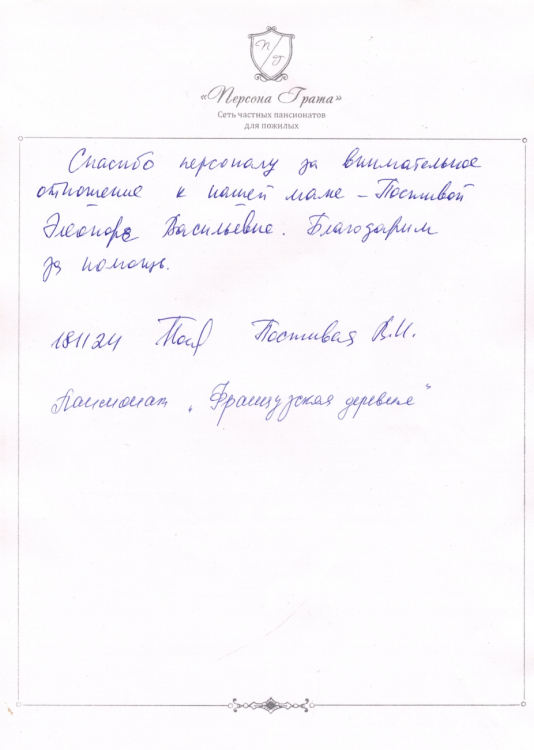 П/Г
«Персона Грата»
Сеть частных пансионатов
для пожилых
Спасибо персоналу за внимательное
отношение к нашей маме – Постивой
Элеоноре Васильевне. Благодарим
за помощь.
181124 Постивая В.И.
Пансионат „Французская деревня"